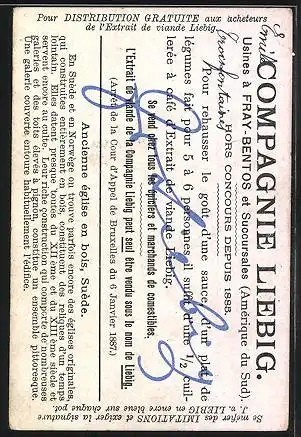 Pour DISTRIBUTION GRATUITE aux acheteurs
de l'Extrait de viande Liebig.
COMPAGNIE LIEBIG.
Usines à FRAY-BENTOS et Succursales (Amérique du Sud),
HORS CONCOURS DEPUIS 1885.
Pour rehausser le goût d'une sauce, d'un plat de
légumes fait pour 5 à 6 personnes il suffit d'une 1/2 cuil-
lerée à café d'Extrait de viande Liebig.
Se vend chez tous les épiciers et marchands de comestibles.
L'Extrait de viande de la Compagnie Liebig peut seul être vendu sous le nom de Liebig.
(Arrêt de la Cour d'Appel de Bruxelles du 6 Janvier 1887.)
Ancienne église en bois, Suède.
En Suède et en Norvège on trouve parfois encore des églises originales,
qui construites entièrement en bois, constituent des reliques d'un temps
lointain. Elles datent presque toutes du XIIème et du XIIIème siècle et
servent encore au culte. Leur riche construction qui comporte de nombreuses
galeries et des toits élevés à pignon, constitue un ensemble pittoresque.
Une galerie couverte entoure habituellement l'édifice.
Se méfier des IMITATIONS et exiger la signature
J. v. LIEBIG en encre bleue sur chaque pot.